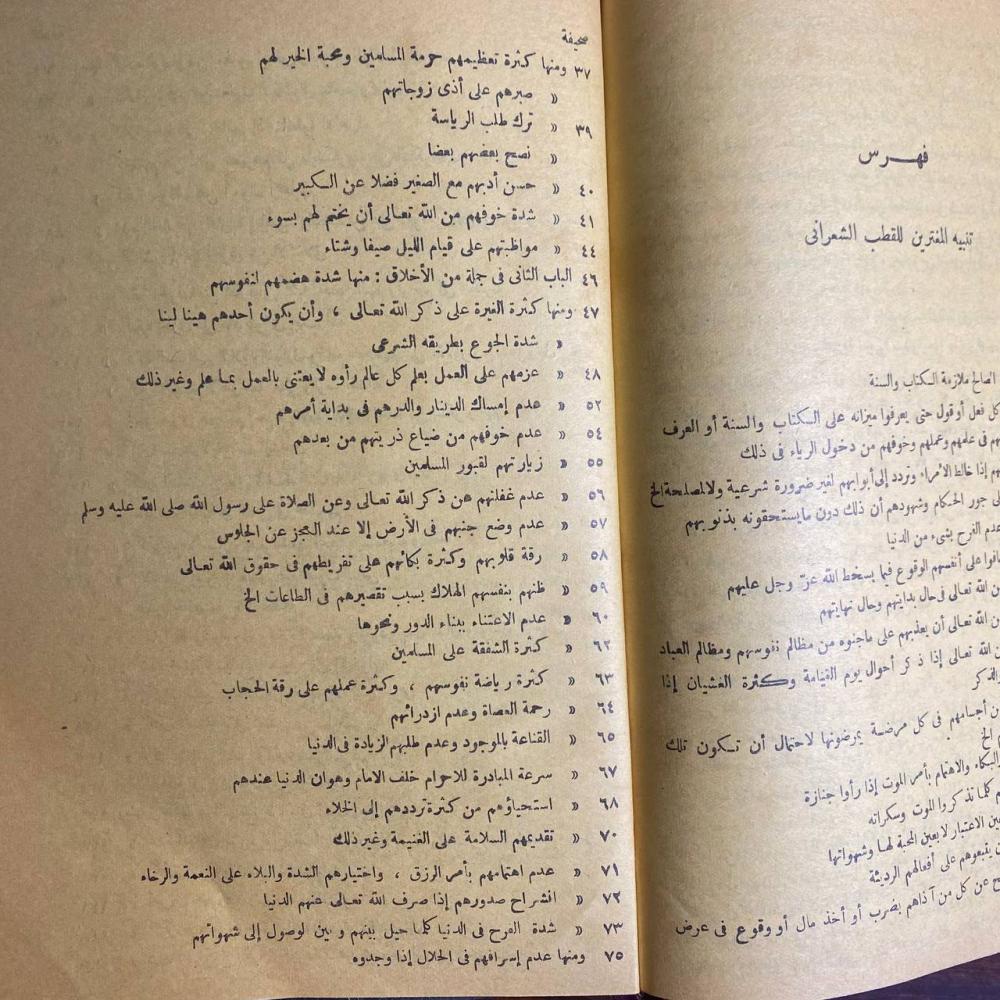 فهرس
تنبيه المفترين للقطب الشعرانى
الصالح ملازمة الكتاب والسنة
كل فعل أو قول حتى يعرفوا ميزانه على الكتاب والسنة أو العرف
فى علمهم وعملهم وخوفهم من دخول الرياء فى ذلك
إذا خالط الأمراء وتردد إلى أبوابهم لغير ضرورة شرعية ولا لمصلحة الخ
جور الحكام وشهودهم أن ذلك دون ما يستحقونه بذنوبهم
عدم الفرح بشىء من الدنيا
على أنفسهم الوقوع فيما يسخط الله عز وجل عليهم
الله تعالى فى حال بدايتهم وحال نهايتهم
الله تعالى أن يعذبهم على ماجنوه من مظالم نفوسهم ومظالم العباد
الله تعالى إذا ذكر أحوال يوم القيامة وكثرة الغشيان إذا
الذكر
أجسامهم فى كل مرضة يمرضونها لاحتمال أن تكون تلك
الخ
والبكاء والاهتمام بأمر الموت إذا رأوا جنازة
كلما تذكروا الموت وسكراته
الاعتبار لابعين المحبة لها وشهواتها
يتبعوهم على أفعالهم الرديئة
عن كل من آذاهم بضرب أو أخذ مال أو وقوع فى عرض
صحيفة
٣٧ ومنها كثرة تعظيمهم حرمة المسلمين ومحبة الخير لهم
« صبرهم على أذى زوجاتهم
٣٩ « ترك طلب الرياسة
« نصح بعضهم بعضا
٤٠ « حسن أدبهم مع الصغير فضلا عن الكبير
٤١ « شدة خوفهم من الله تعالى أن يختم لهم بسوء
٤٤ « مواظبتهم على قيام الليل صيفا وشتاء
٤٦ الباب الثانى فى جملة من الأخلاق : منها شدة هضمهم لنفوسهم
٤٧ ومنها كثرة الغيرة على ذكر الله تعالى ، وأن يكون أحدهم هينا لينا
« شدة الجوع بطريقه الشرعى
٤٨ « عزمهم على العمل بعلم كل عالم رأوه لا يعتنى بالعمل بما علم وغير ذلك
٥٢ « عدم إمساك الدينار والدرهم فى بداية أمرهم
٥٤ « عدم خوفهم من ضياع ذريتهم من بعدهم
٥٥ « زيارتهم لقبور المسلمين
٥٦ « عدم غفلتهم عن ذكر الله تعالى وعن الصلاة على رسول الله صلى الله عليه وسلم
٥٧ « عدم وضع جنبهم فى الأرض إلا عند العجز عن الجلوس
٥٨ « رقة قلوبهم وكثرة بكائهم على تفريطهم فى حقوق الله تعالى
٥٩ « ظنهم بنفسهم الهلاك بسبب تقصيرهم فى الطاعات الخ
٦٠ « عدم الاعتناء ببناء الدور ونحوها
٦٢ « كثرة الشفقة على المسلمين
٦٣ « كثرة رياضة نفوسهم ، وكثرة عملهم على رقة الحجاب
٦٤ « رحمة العصاة وعدم ازدرائهم
٦٥ « القناعة بالموجود وعدم طلبهم الزيادة فى الدنيا
٦٧ « سرعة المبادرة للاحرام خلف الامام وهوان الدنيا عندهم
٦٨ « استحياؤهم من كثرة ترددهم إلى الخلاء
٧٠ « تقديمهم السلامة على الغنيمة وغير ذلك
٧١ « عدم اهتمامهم بأمر الرزق ، واختيارهم الشدة والبلاء على النعمة والرخاء
٧٢ « انشراح صدورهم إذا صرف الله تعالى عنهم الدنيا
٧٣ « شدة الفرح فى الدنيا كلما حيل بينهم وبين لوصول إلى شهواتهم
٧٥ ومنها عدم إسرافهم فى الحلال إذا وجدوه